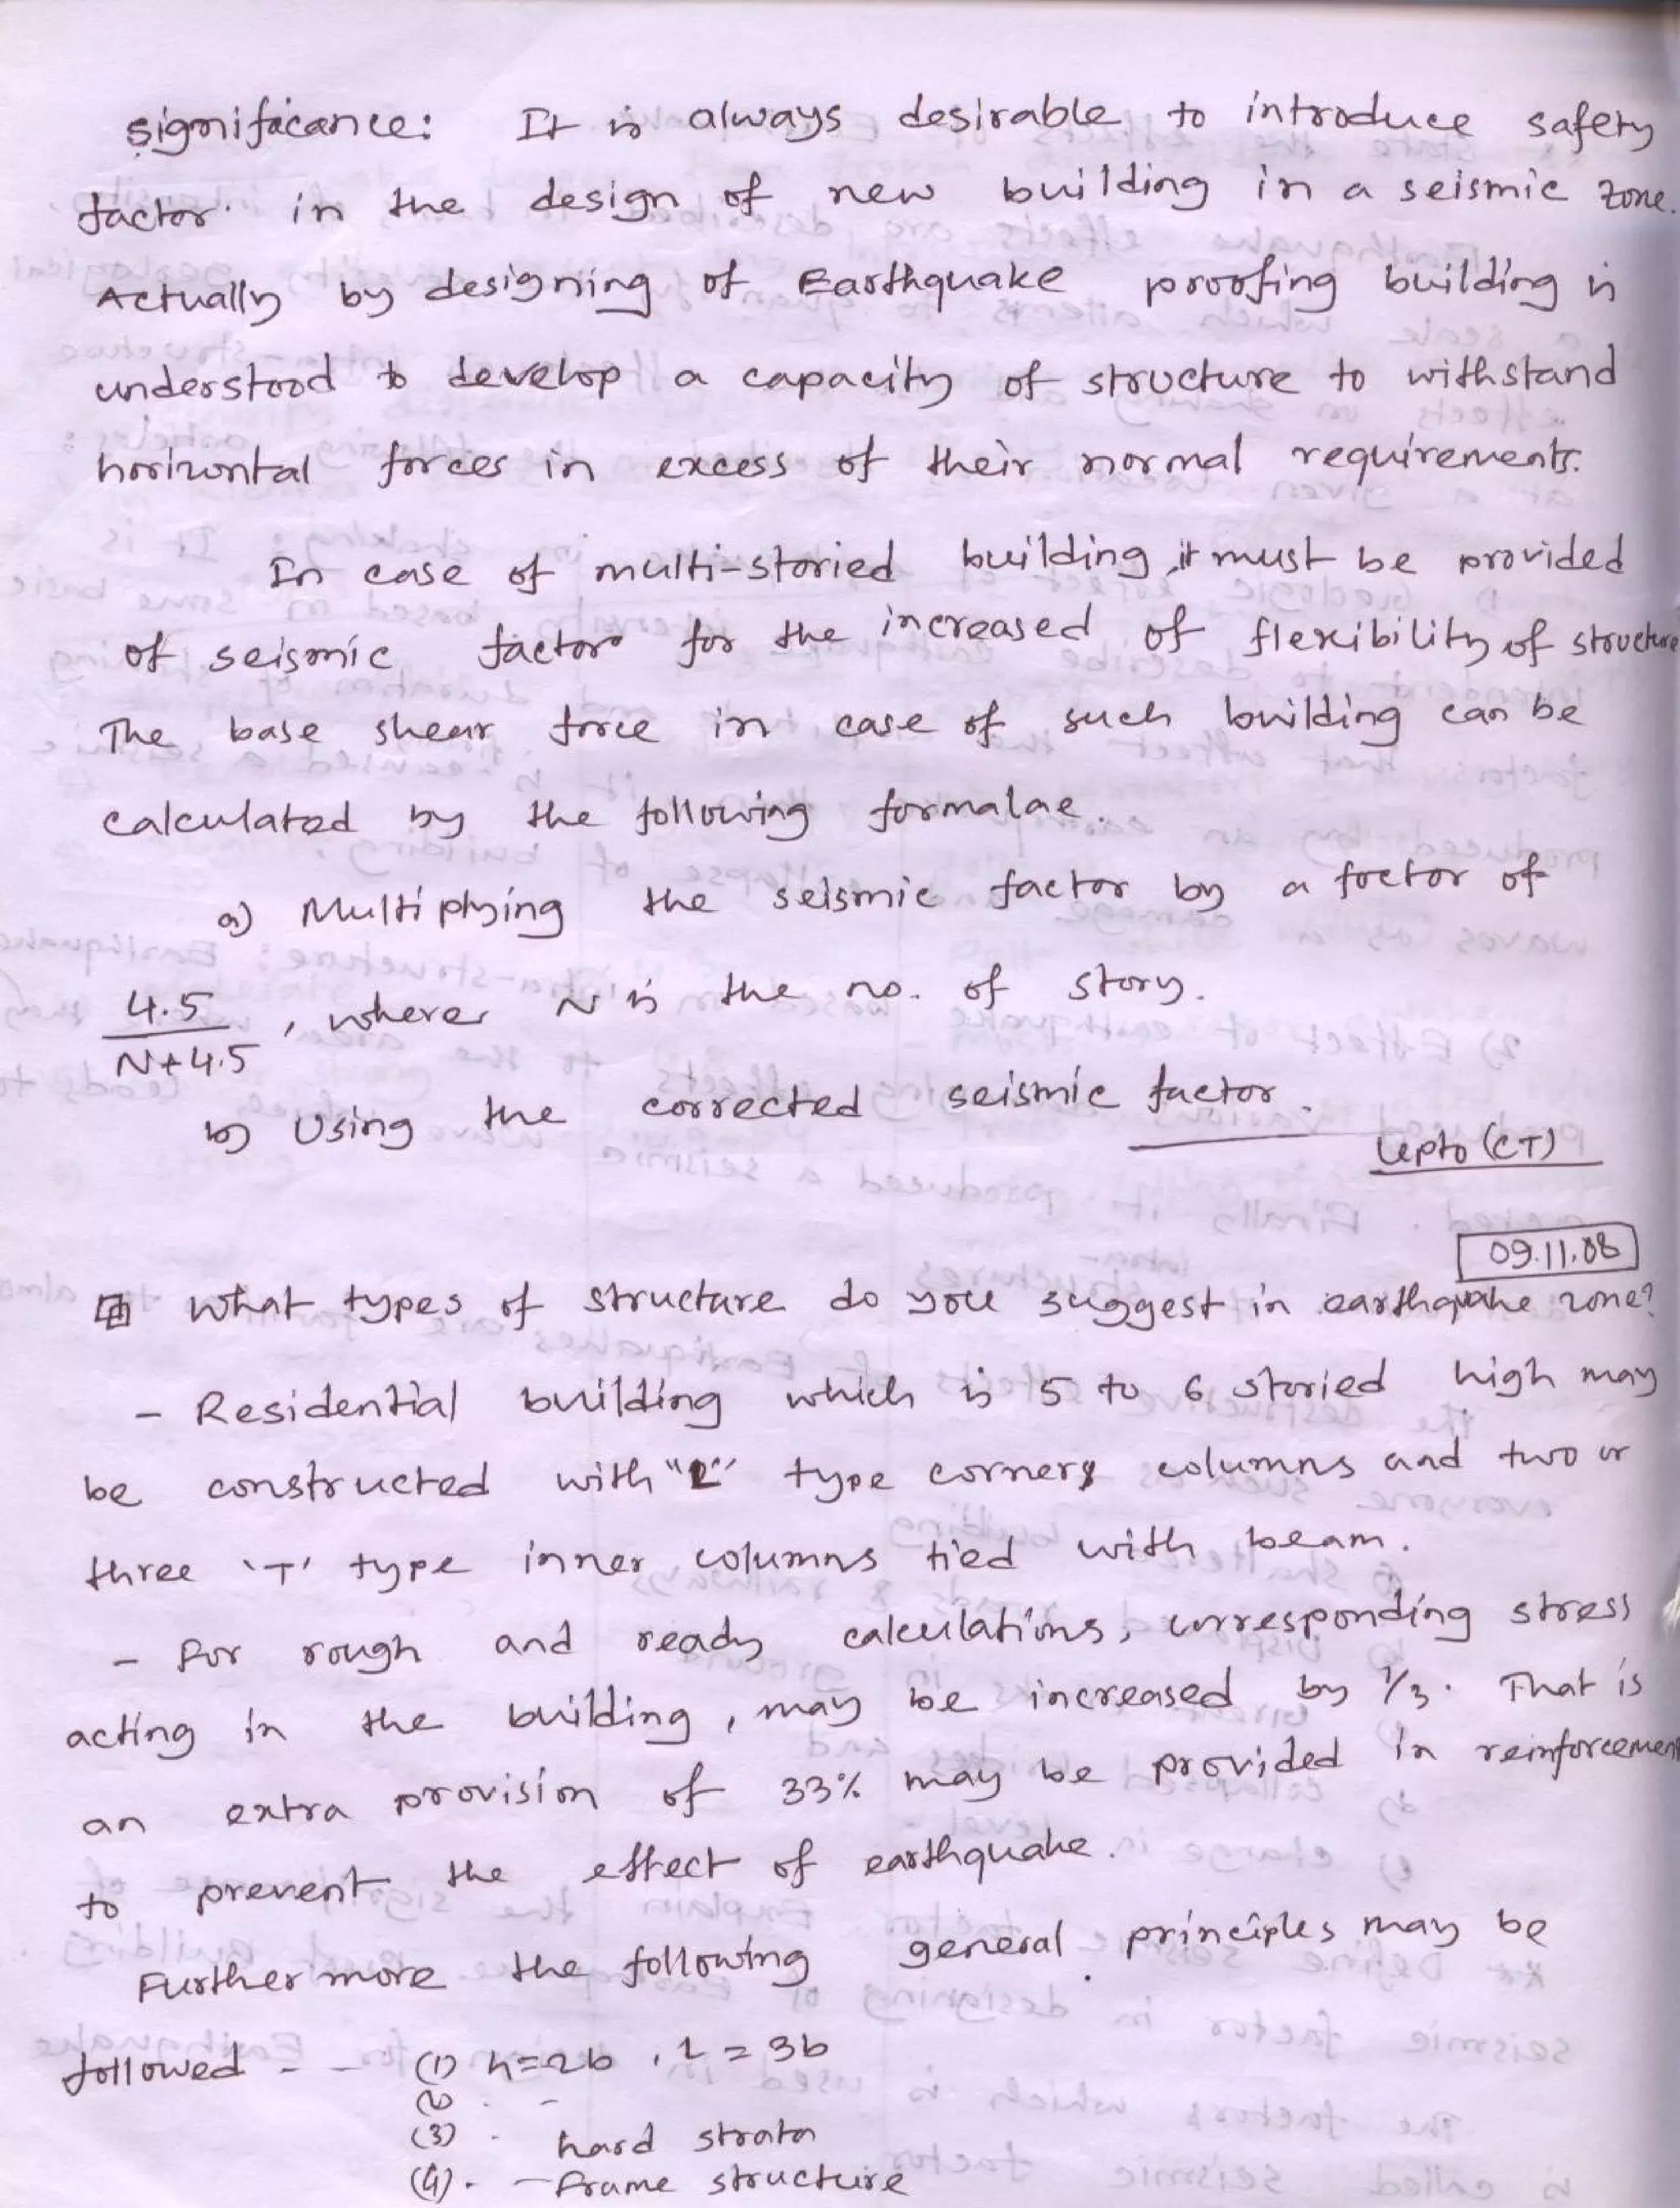 significance: It is always desirable to introduce safety
factor in the design of new building in a seismic zone.
Actually by designing of Earthquake proofing building is
understood to develop a capacity of structure to withstand
horizontal forces in excess of their normal requirements.
In case of multi-storied building, it must be provided
of seismic factor for the increased of flexibility of structure
The base shear force in case of such building can be
calculated by the following formalae.
a) Multiplying the seismic factor by a factor of
4.5/N+4.5, where N is the no. of story.
b) Using the corrected seismic factor.
Upto (CT)
09.11.08
What types of structure do you suggest in earthquake zone?
- Residential building which is 5 to 6 storied high may
be constructed with "L" type corners columns and two or
three 'T' type inner columns tied with beam.
- For rough and ready calculations, corresponding stress
acting in the building, may be increased by 1/3. That is
an extra provision of 33% may be provided in reinforcement
to prevent the effect of earthquake.
Furthermore the following general principles may be
followed - - (1) h=2b, l=3b
(2) . -
(3) . hard strata
(4). - Frame structure